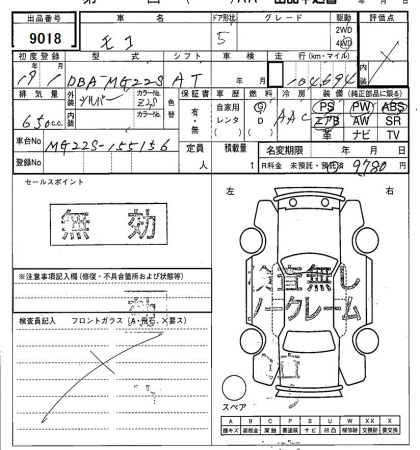 出品番号 車名 ドア形状 グレード 駆動 評価点
9018 モコ 5 2WD 4WD
初度登録 型式 シフト 車検 走行(km・マイル) 内装
19年1月 DBA-MG22S AT 年 月 104,694
排気量 外装 シルバー カラーNo. Z2S 色替 保証書 車歴 燃料 冷房 装備(純正部品に限る)
650cc 内装 カラーNo. 有・無 自家用 G AAC PS PW ABS
レンタ D エアB AW SR
( ) ( ) 革 ナビ TV
車台No MG22S-155156 定員 積載量 名変期限 年 月 日
登録No 人 t R料金 未預託・預託済 9780円
セールスポイント 左 右
無効
査無し
ノークレーム
※注意事項記入欄(修復・不具合箇所および状態等)
検査員記入 フロントガラス(A・飛石、×要ス)
スペア
A B C P S U W XX X
線キズ 要板金 腐触 要塗装 サビ 凹凸 補修跡 交換跡 要交換